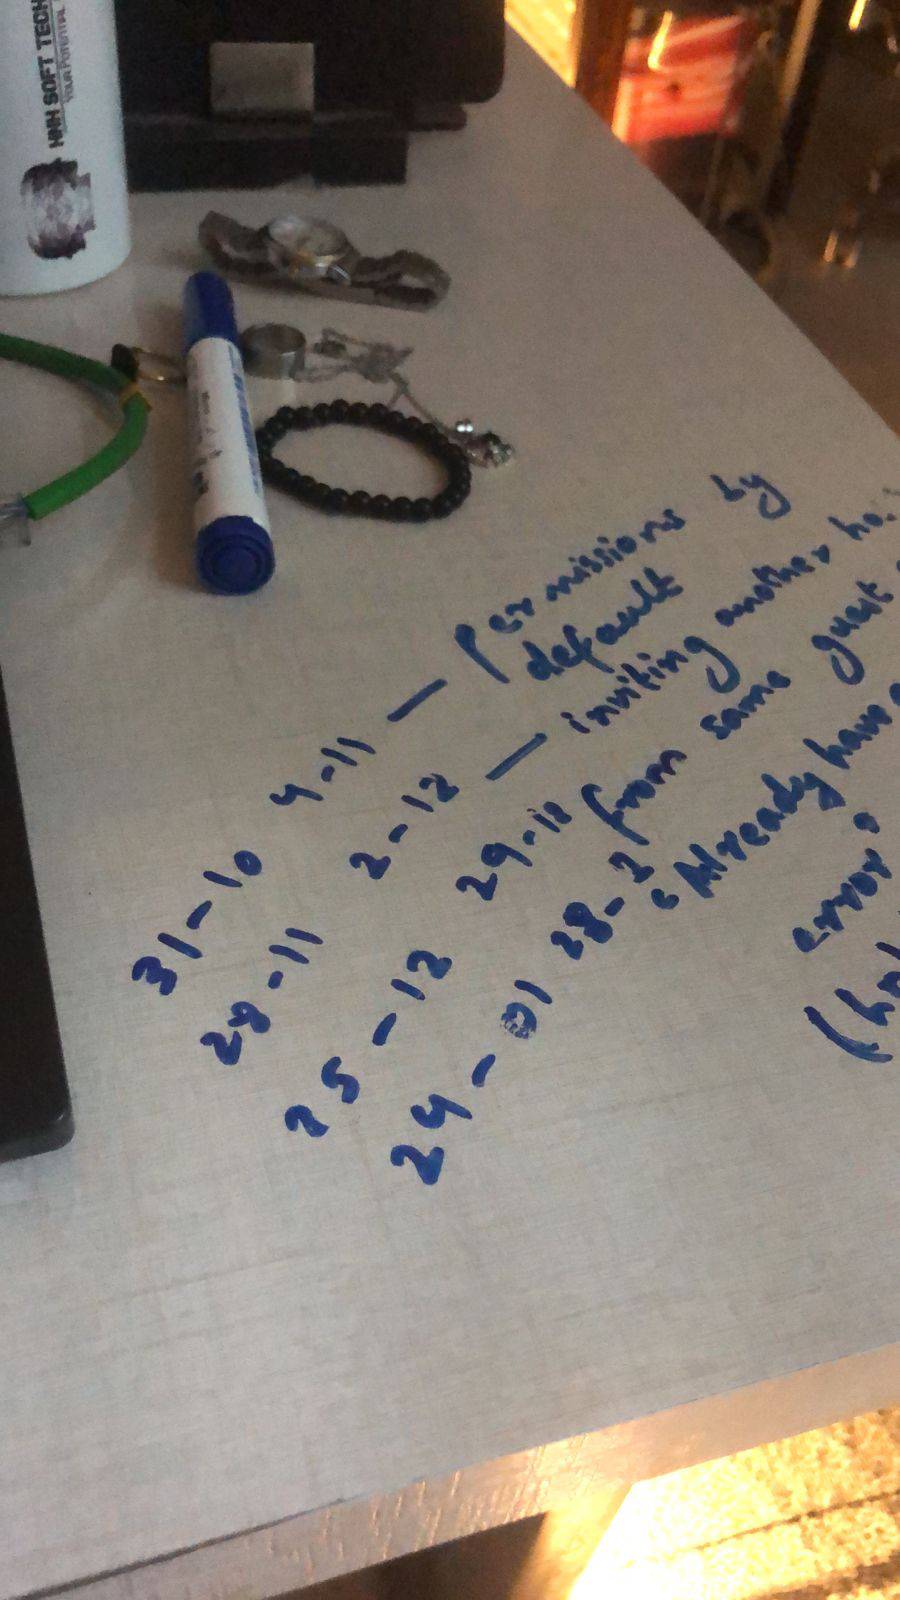 HNH SOFT TECH
YOUR POTENTIAL
31-10 4-11 — Permissions by
default
28-11 2-12 — inviting another
25-12 29-12 from same guest
24-01 28- Already have
error